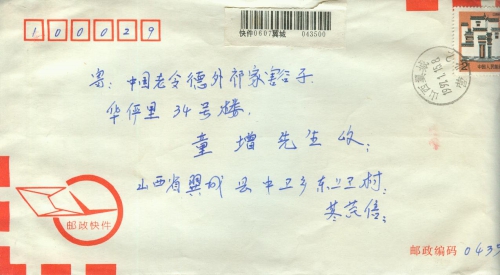 100029
快件0607翼城 043500
寄：中国老令德外祁家豁子
华俨里34号楼.
童增先生收
山西省翼城县中卫乡东卫村：
邮政快件
邮政编码 043